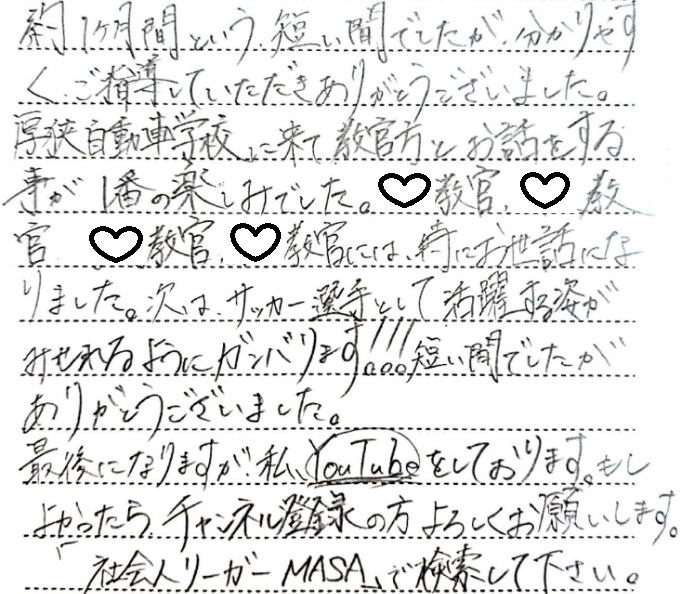 約1ヶ月間という、短い間でしたが、分かりやす
く、ご指導していただきありがとうございました。
厚狭自動車学校に来て教官方とお話をする
事が1番の楽しみでした。♡教官、♡教
官、♡教官、♡教官には、特にお世話にな
りました。次は、サッカー選手として活躍する姿が
みせれるようにガンバります!!!短い間でしたが
ありがとうございました。
最後になりますが、私、YouTubeをしております。もし
よかったら、チャンネル登録の方よろしくお願いします。
「社会人リーガーMASA」で検索して下さい。